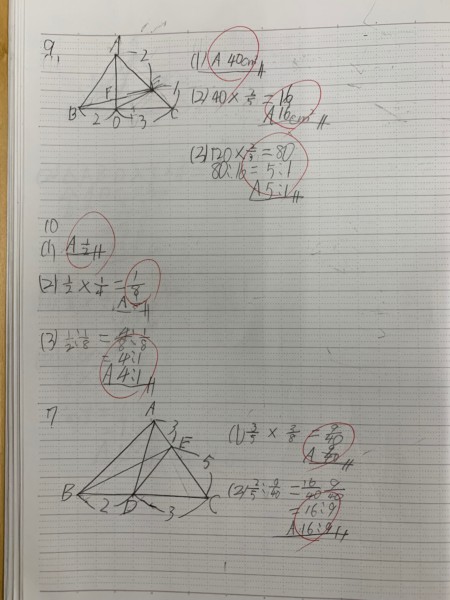 9,
A
2
E
1
F
B
C
2 D 3
(1) A 40cm²
(2) 40 × 2/5 = 16
A 16cm²
(3) 120 × 2/3 = 80
80:16 = 5:1
A 5:1
10
(1) A 1/2
(2) 1/2 × 1/4 = 1/8
A
(3) 1/2:1/8 = 4/8:1/8
= 4:1
A 4:1
7
A
3
E
5
B
C
2 D 3
(1) 3/5 × 3/8 = 9/40
A 9/40
(2) 2/5:9/40 = 16/40 9/40
= 16:9
A 16:9